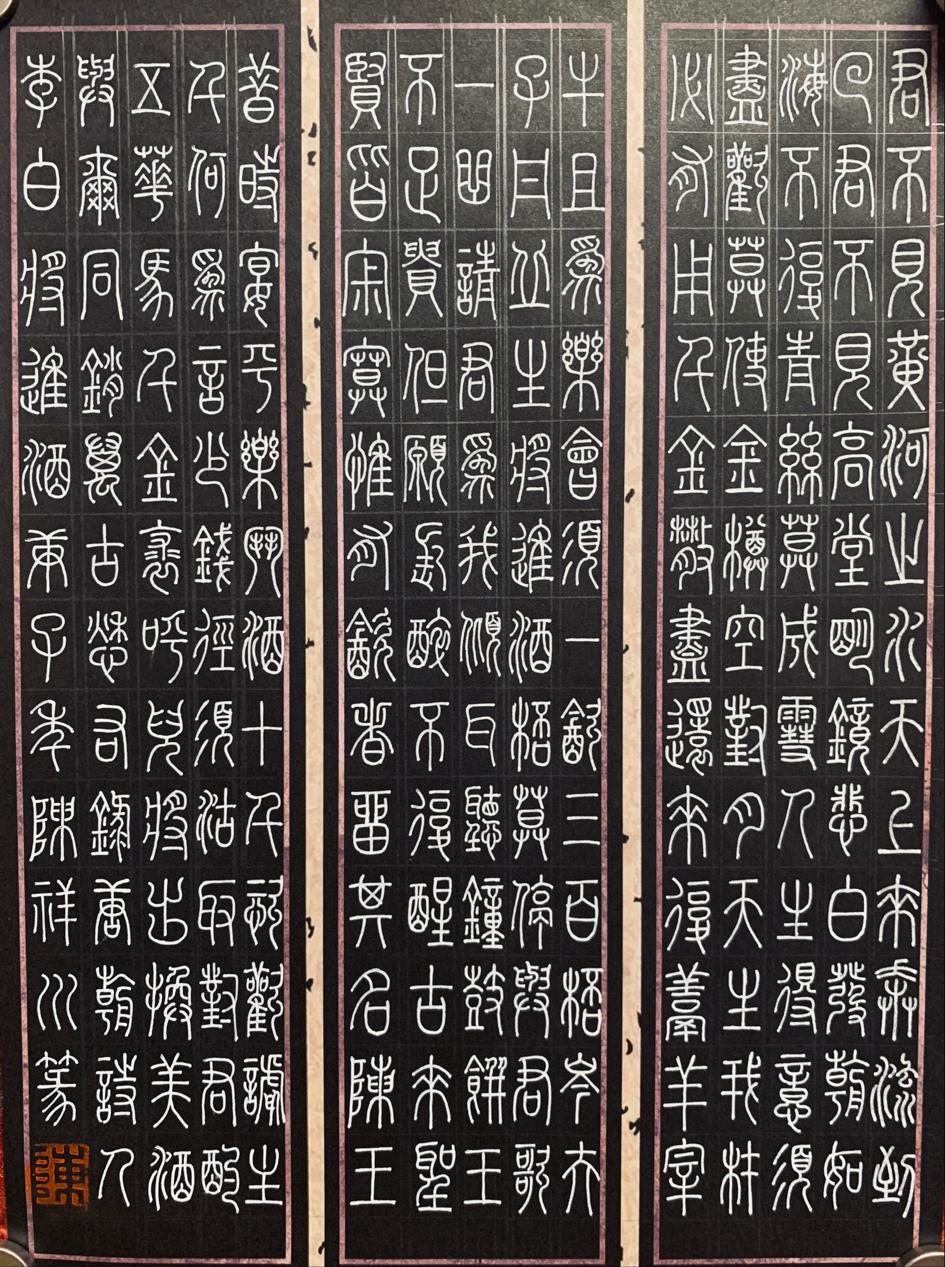 君不見黃河之水天上來奔流到
回君不見高堂明鏡悲白發朝如
海不復青絲莫成雪人生得意須
盡歡莫使金樽空對月天生我材
必有用千金散盡還來復羹羊宰
牛且為樂會須一飲三百杯岑夫
子丹丘生將進酒杯莫停與君歌
一曲請君為我傾耳聽鐘鼓饌玉
不足貴但願長醉不復醒古來聖
賢皆寂寞惟有飲者留其名陳王
昔時宴平樂鬥酒十千恣歡謔主
千何為言少錢徑須沽取對君酌
五華馬千金裘呼兒將出換美酒
與爾同銷萬古愁右錄唐朝詩人
李白將進酒庚子年陳祥川篆